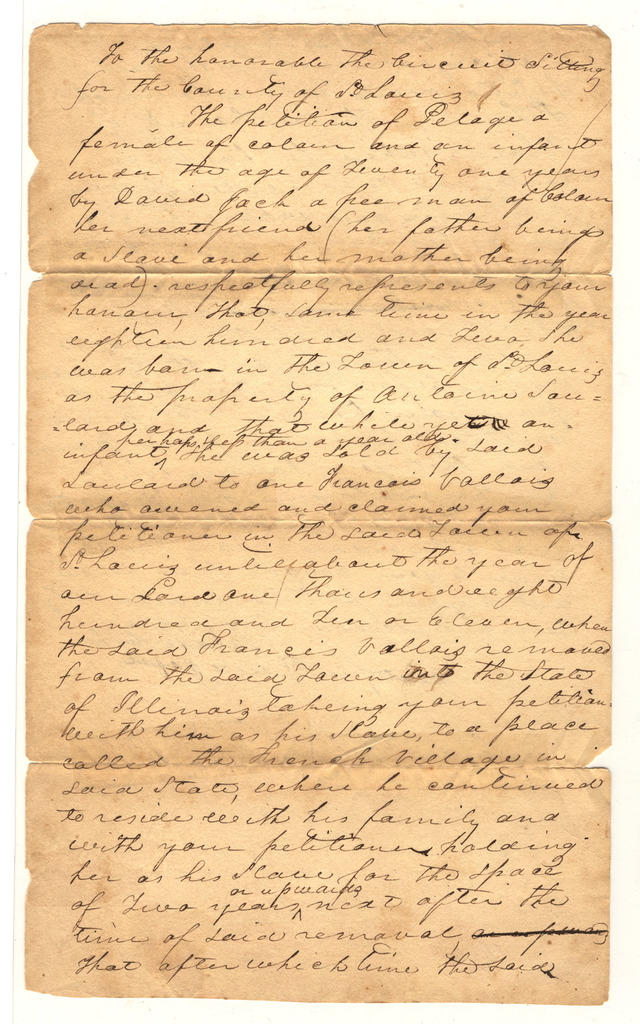 To the honorable the Circuit Sitting
for the County of St Louis
The petition of Pelage a
female of colour and an infant
under the age of Twenty one years
by David Jack a free man of Colour
her next friend (her father being
a Slave and her mother being
dead). respectfully represents to your
honour, that, some time in the year
eighteen hundred and Two, She
was born in the Town of St Louis
as the property of Antoine Sou=
=lard and that while yet an
perhaps less than a year old.
infant, She was Sold by said
Soulard to one Francois Vallois
who owened and claimed your
petitioner in the said Town of
St Louis untill about the year of
our Lord one thousand eight
hundred and Ten or Eleven, when
the said Francis Vallois removed
from the said Town into the State
of Illinois takeing your petition
with him as his Slave, to a place
called the French Village in
said State, where he continued
to reside with his family and
with your petitioner, holding
her as his Slave for the space
or upwards
of Two years, next after the
time of said removal, or upwards
that after which time the said